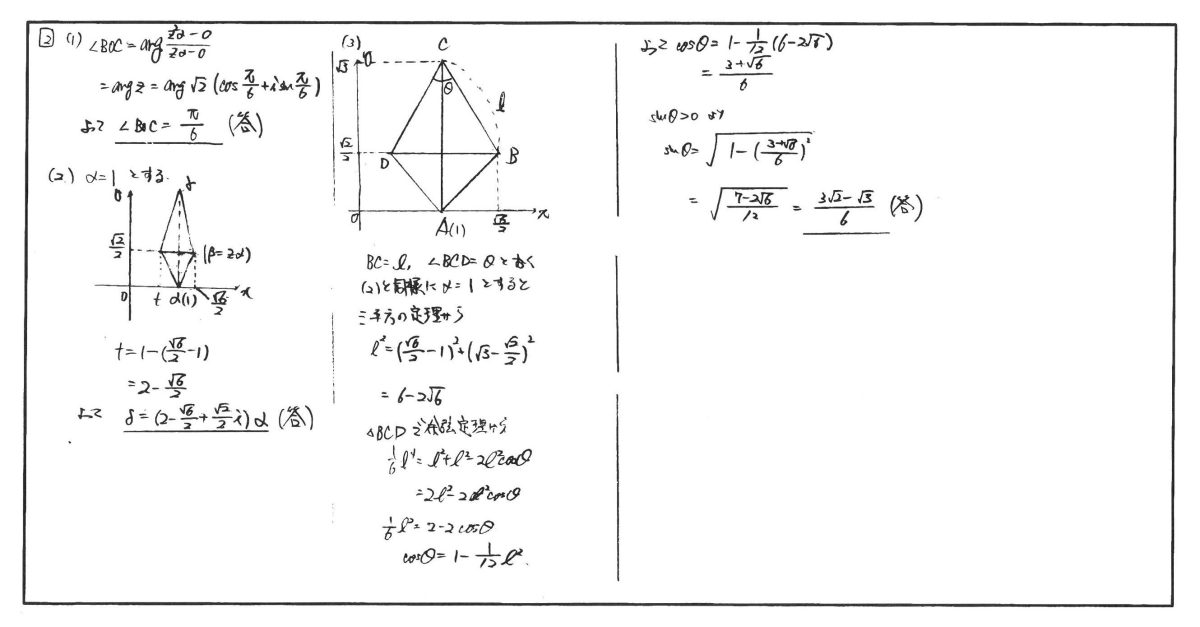 2 (1) ∠BOC = arg (z²α-0)/(zα-0)
= arg z = arg √2 (cos π/6 + i sin π/6)
よって ∠BOC = π/6 (答)
(2) α=1 とする
γ
√2/2
(β=zα)
0 t α(1) √6/2 x
t=1-(√6/2-1)
=2-√6/2
よって δ=(2-√6/2+√2/2 i)α (答)
(3)
C
√3
θ
l
√2/2
D
B
0
A(1)
√6/2
x
BC=l, ∠BCD=θとおく
(2)と同様にα=1とすると
三平方の定理から
l²=(√6/2-1)²+(√3-√2/2)²
=6-2√6
△BCDで余弦定理から
1/6 l⁴=l²+l²-2l²cosθ
=2l²-2l²cosθ
1/6 l²=2-2cosθ
cosθ=1-1/12 l².
よって cosθ=1-1/12(6-2√6)
=(3+√6)/6
sinθ>0 より
sinθ=√(1-((3+√6)/6)²)
=√((7-2√6)/12)=(3√2-√3)/6 (答)